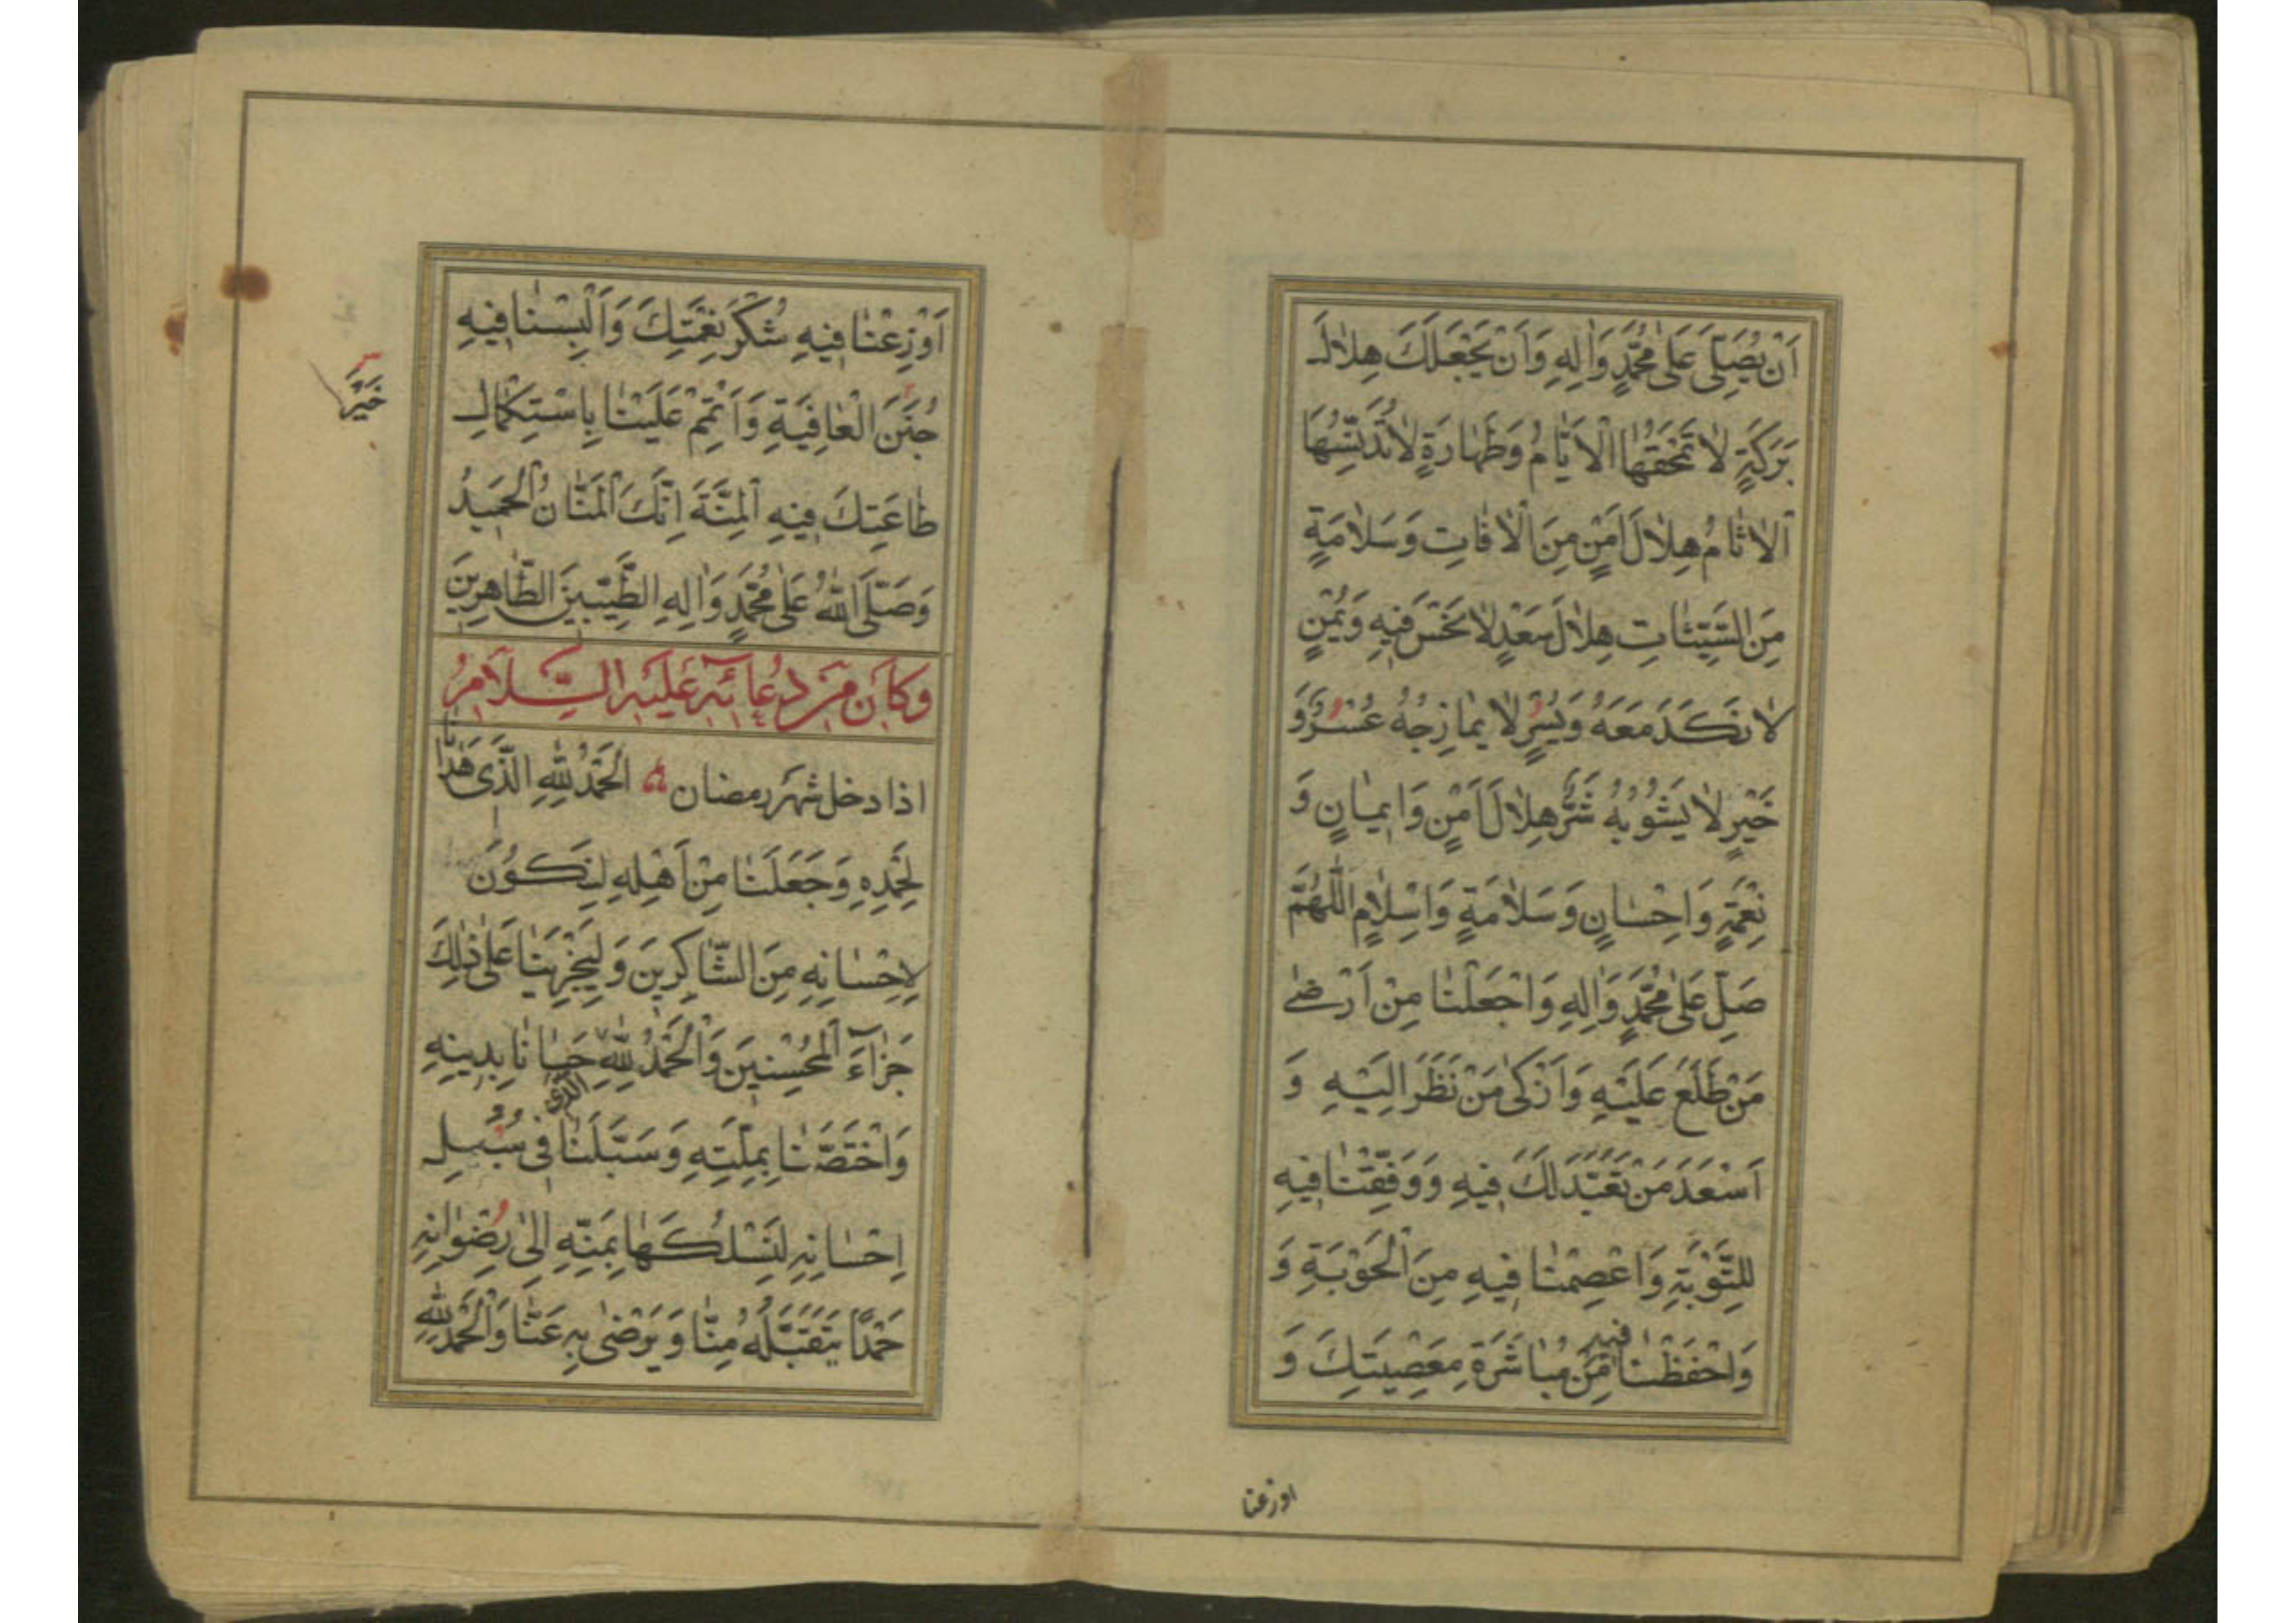 اَنْ يُصَلِّىَ عَلٰى مُحَمَّدٍ وَاٰلِهِ وَاَنْ يَجْعَلَكَ هِلٰالَ
بَرَكَةٍ لٰا تَمْحَقُهَا الْاَيّٰامُ وَطَهٰارَةٍ لٰا تُدَنِّسُهَا
الْاٰثٰامُ هِلٰالَ اَمْنٍ مِنَ الْاٰفٰاتِ وَسَلٰامَةٍ
مِنَ السَّيِّئٰاتِ هِلٰالَ سَعْدٍ لٰا نَحْسَ فيهِ وَيُمْنٍ
لٰا نَكَدَ مَعَهُ وَيُسْرٍ لٰا يُمٰازِجُهُ عُسْرٌ وَ
خَيْرٍ لٰا يَشُوبُهُ شَرٌّ هِلٰالَ اَمْنٍ وَايمٰانٍ وَ
نِعْمَةٍ وَاِحْسٰانٍ وَسَلٰامَةٍ وَاِسْلٰامٍ اَللّٰهُمَّ
صَلِّ عَلٰى مُحَمَّدٍ وَاٰلِهِ وَاجْعَلْنٰا مِنْ اَرْضٰى
مَنْ طَلَعَ عَلَيْهِ وَاَزْكٰى مَنْ نَظَرَ اِلَيْهِ وَ
اَسْعَدَ مَنْ تَعَبَّدَ لَكَ فيهِ وَوَفِّقْنٰا فيهِ
لِلتَّوْبَةِ وَاعْصِمْنٰا فيهِ مِنَ الْحَوْبَةِ وَ
وَاحْفَظْنٰا فيه مِنْ مُبٰاشَرَةِ مَعْصِيَتِكَ وَ
اوزعنا
اَوْزِعْنٰا فيهِ شُكْرَ نِعْمَتِكَ وَاَلْبِسْنٰا فيهِ
جُنَنَ الْعٰافِيَةِ وَاَتْمِمْ عَلَيْنٰا بِاسْتِكْمٰالِ
طٰاعَتِكَ فيهِ الْمِنَّةَ اِنَّكَ الْمَنّٰانُ الْحَميدُ
وَصَلَّى اللّٰهُ عَلٰى مُحَمَّدٍ وَاٰلِهِ الطَّيِّبينَ الطّٰاهِرينَ
وَكَانَ مِنْ دُعَائِهِ عَلَيْهِ السَّلَامُ
اذا دخل شهر رمضان اَلْحَمْدُ لِلّٰهِ الَّذى هَدٰانٰا
لِحَمْدِهِ وَجَعَلَنٰا مِنْ اَهْلِهِ لِنَكُونَ
لِاِحْسٰانِهِ مِنَ الشّٰاكِرينَ وَلِيَجْزِيَنٰا عَلٰى ذٰلِكَ
جَزٰاءَ الْمُحْسِنينَ وَالْحَمْدُ لِلّٰهِ الذى حَبٰانٰا بِدينِهِ
وَاخْتَصَّنٰا بِمِلَّتِهِ وَسَبَّلَنٰا فى سُبُلِ
اِحْسٰانِهِ لِنَسْلُكَهٰا بِمَنِّهِ اِلٰى رِضْوٰانِهِ
حَمْدًا يَتَقَبَّلُهُ مِنّٰا وَيَرْضٰى بِهِ عَنّٰا وَالْحَمْدُ لِلّٰهِ